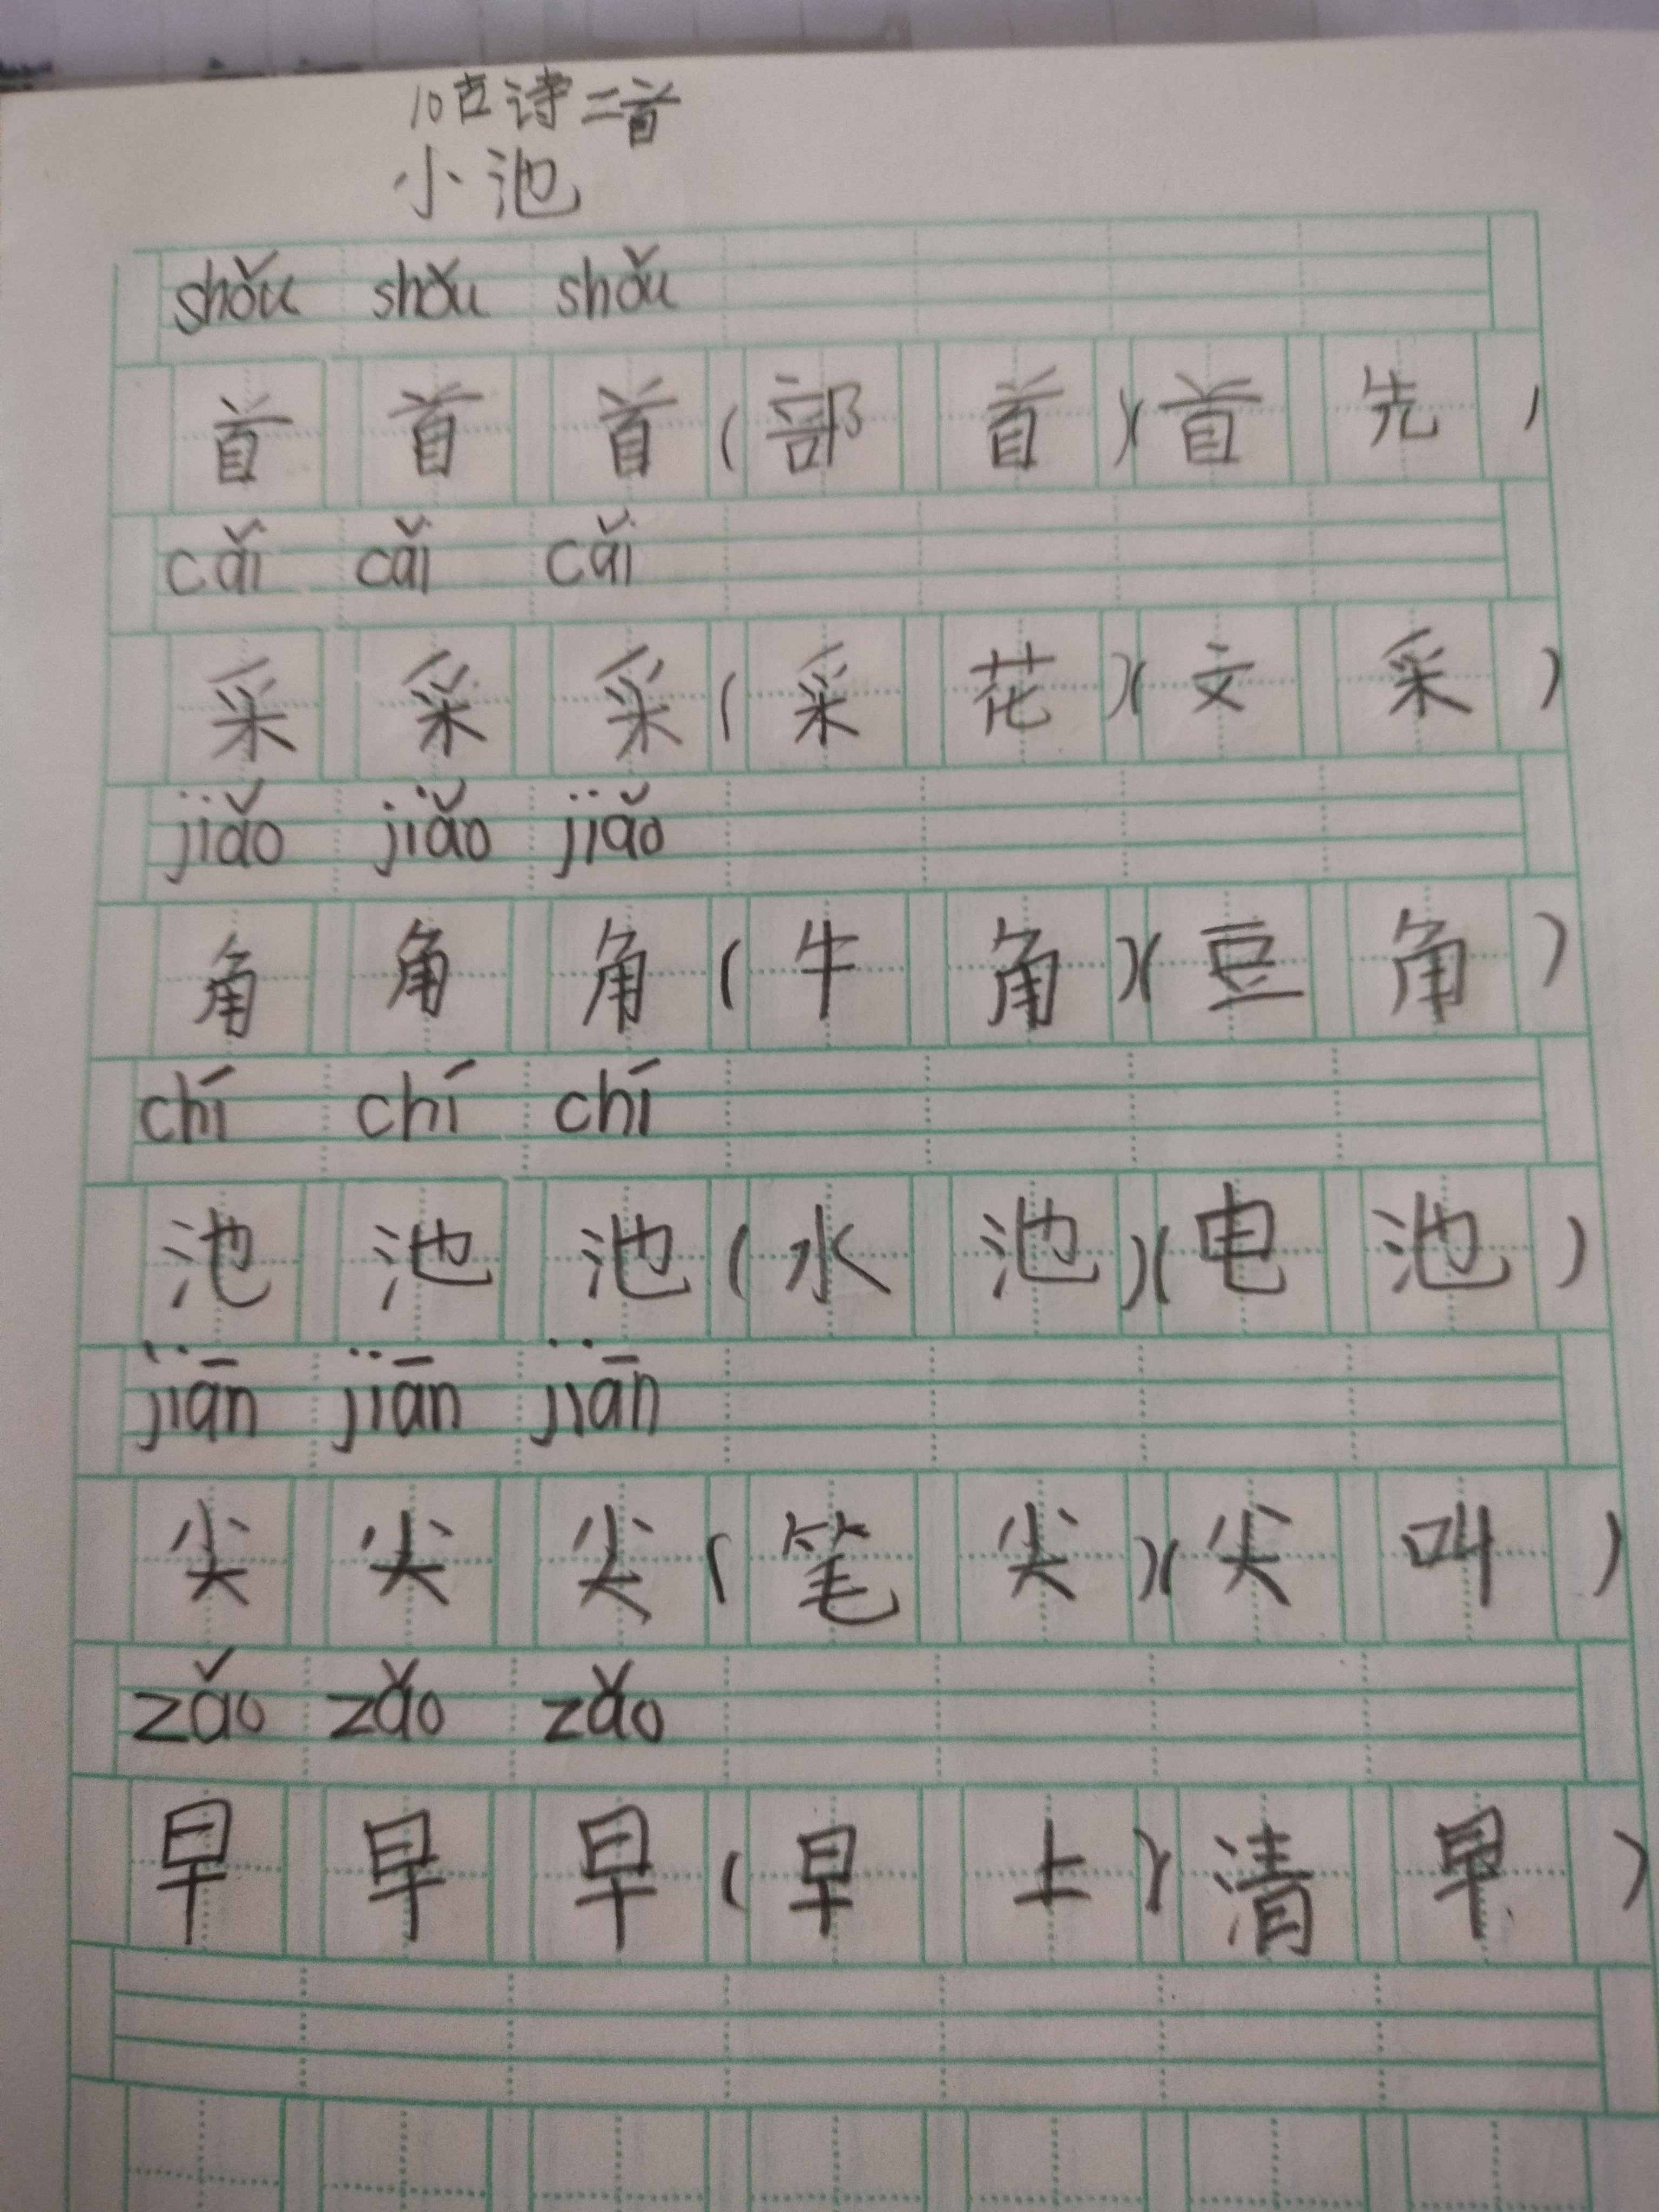 10古诗二首
小池
shǒu shǒu shǒu
首 首 首（部 首）（首 先）
cǎi cǎi cǎi
采 采 采（采 花）（文 采）
jiǎo jiǎo jiǎo
角 角 角（牛 角）（豆 角）
chí chí chí
池 池 池（水 池）（电 池）
jiān jiān jiān
尖 尖 尖（笔 尖）（尖 叫）
zǎo zǎo zǎo
早 早 早（早 上）（清 早）